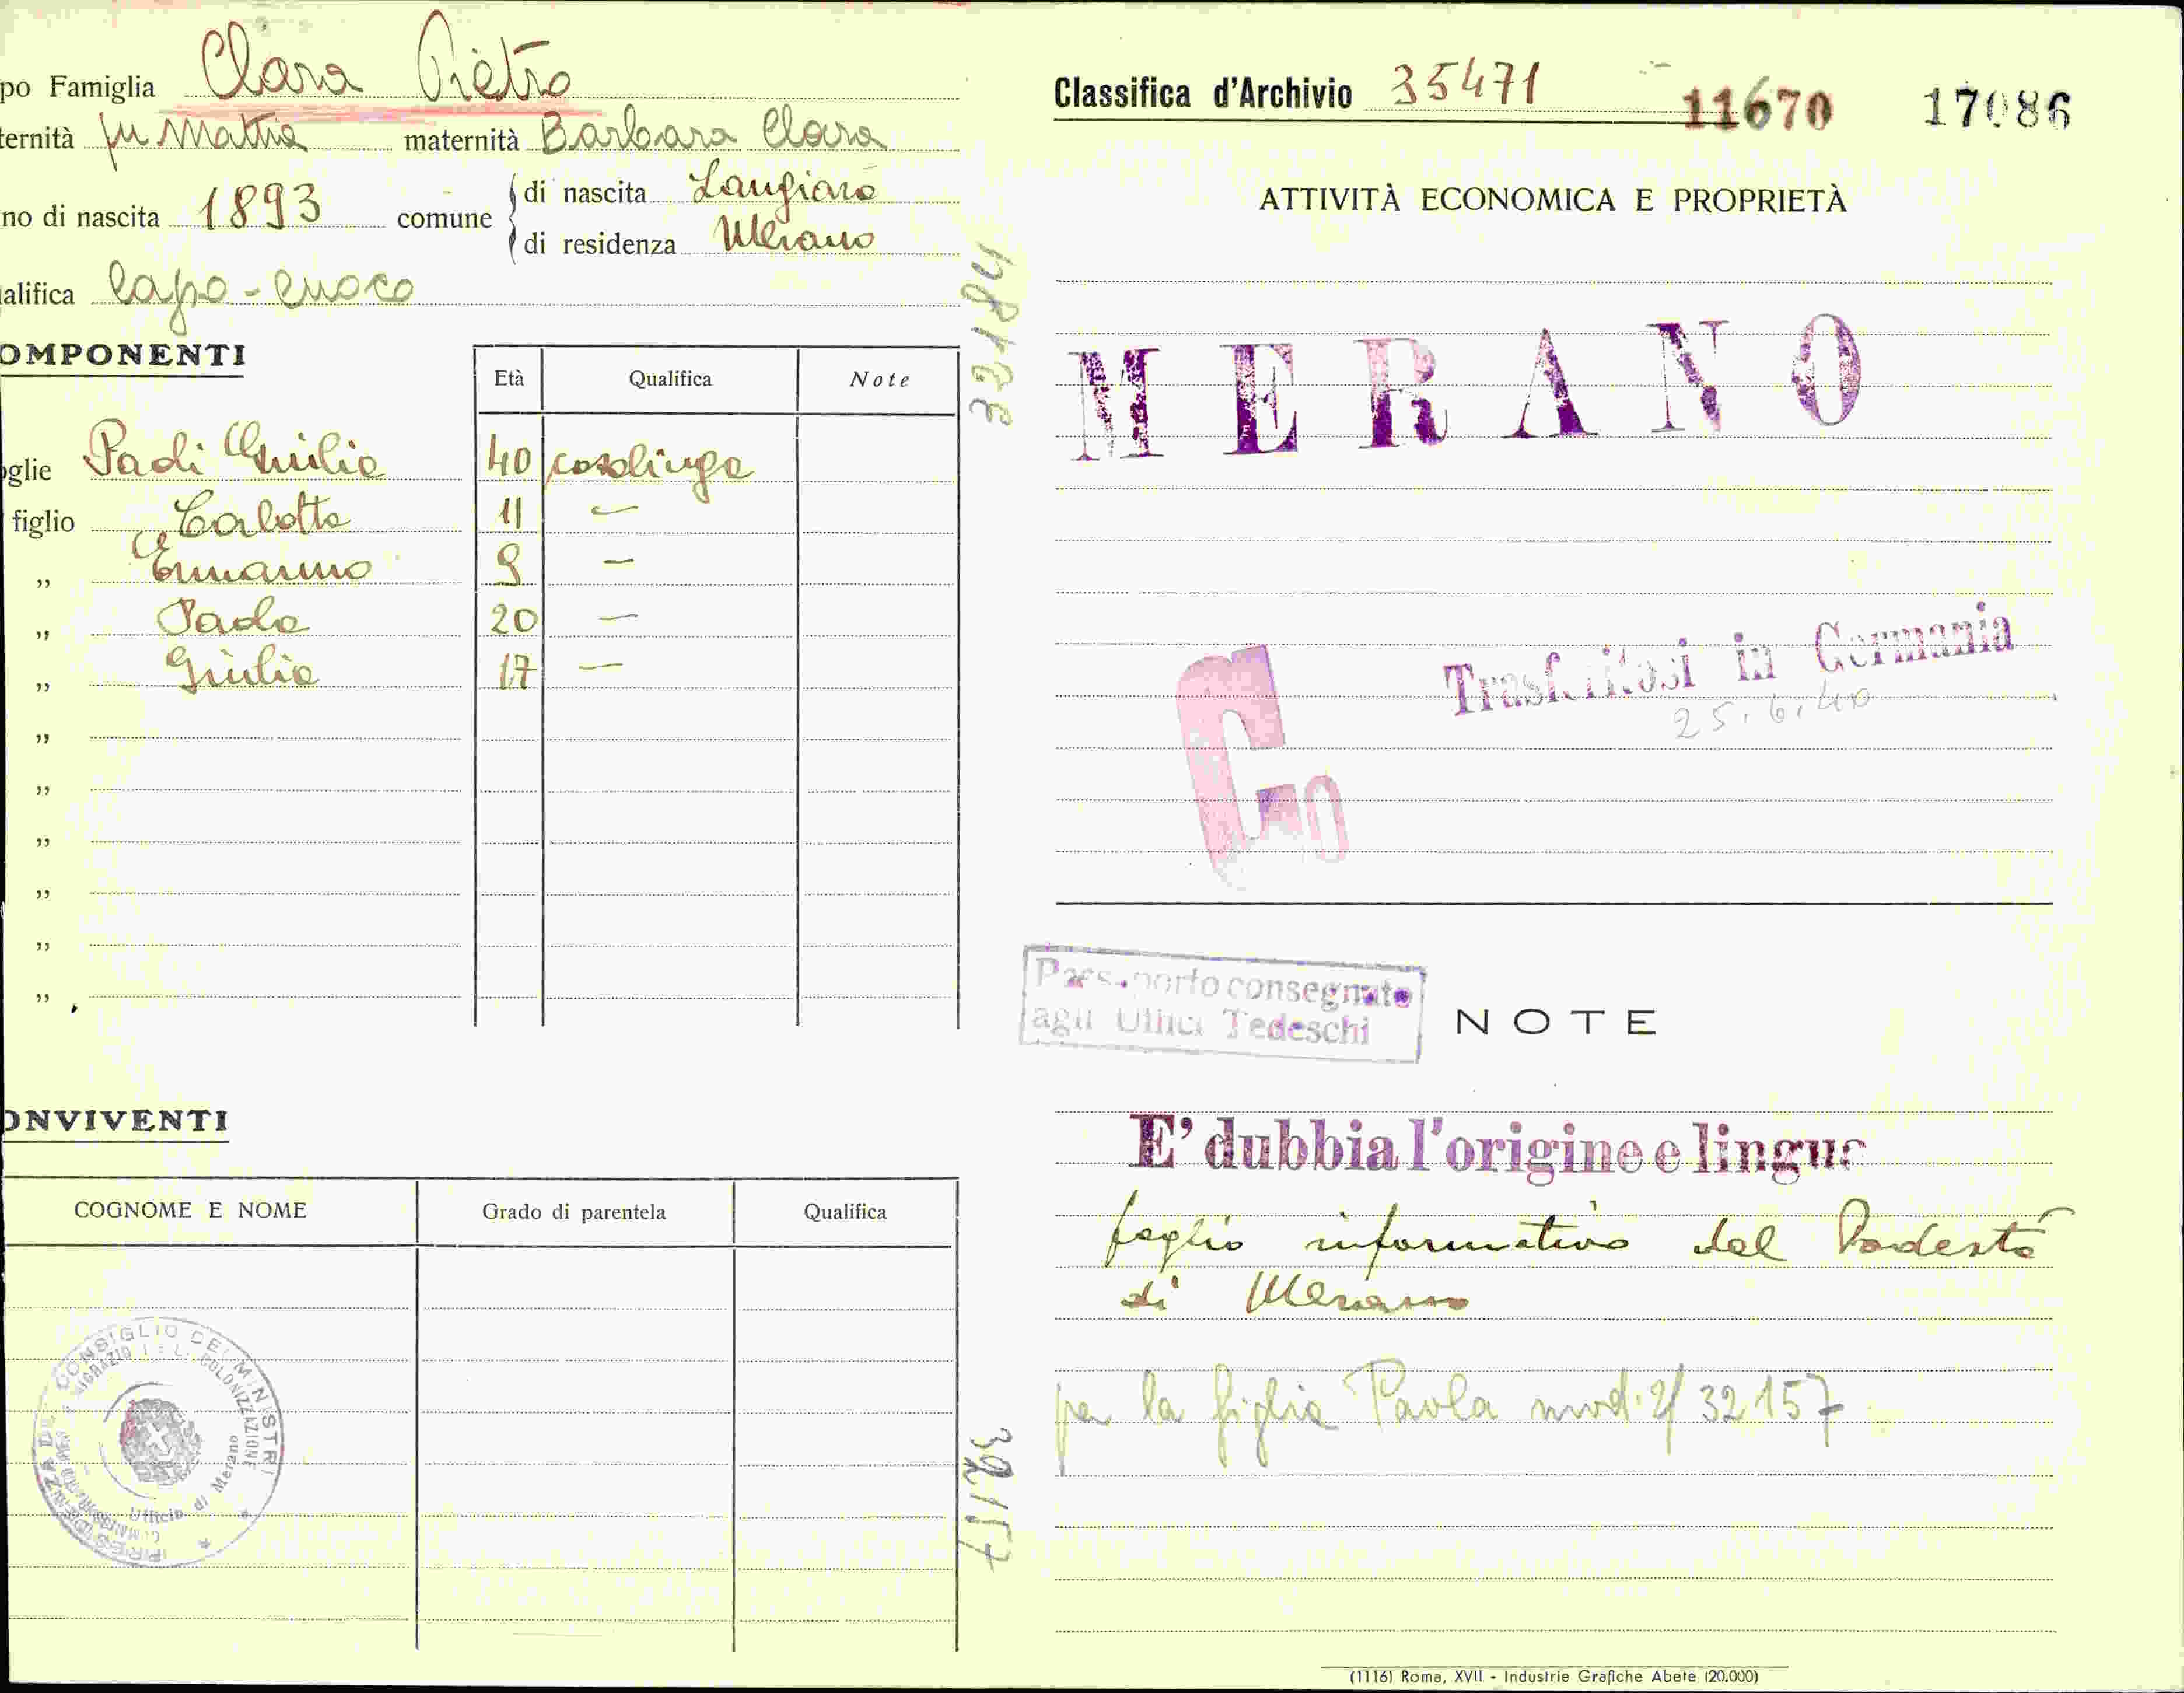 po Famiglia Clara Pietro
ternità fu Mattia maternità Barbara Clara
no di nascita 1893 comune di nascita Langiarò
di residenza Merano
alifica Capo-cuoco
OMPONENTI
Età Qualifica Note
oglie Padi Giulia 40 casalinga
figlio Carlotta 11 —
„ Ermanno 9 —
„ Paola 20 —
„ Giulia 17 —
„
„
„
„
„
„
ONVIVENTI
COGNOME E NOME Grado di parentela Qualifica
CONSIGLIO DEI MINISTRI
Ufficio di Merano
32157
Classifica d'Archivio 35471 11670 17086
ATTIVITÀ ECONOMICA E PROPRIETÀ
MERANO
Trasferitosi in Germania
25.6.40
Passaporto consegnato
agli Uffici Tedeschi
NOTE
E' dubbia l'origine e lingua
foglio informativo del Podestà
di Merano
per la figlia Paola mod. 2/ 32157
(1116) Roma, XVII - Industrie Grafiche Abete (20.000)